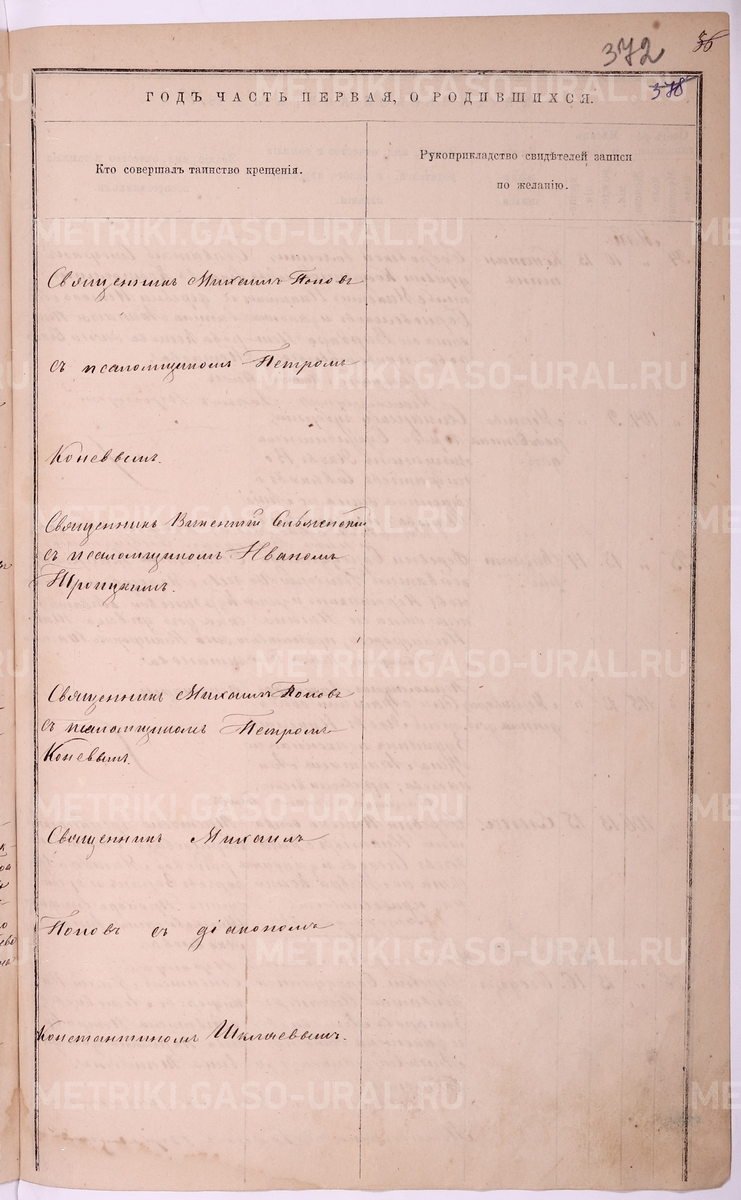 372
36
378
ГОДЪ ЧАСТЬ ПЕРВАЯ, О РОДИВШИХСЯ.
Кто совершалъ таинство крещенія.
Рукоприкладство свидѣтелей записи
по желанію.
Священникъ Михаилъ Поповъ
съ псаломщикомъ Петромъ
Коневымъ.
Священникъ
съ псаломщикомъ Иваномъ
Троицкимъ.
Священникъ Михаилъ Поповъ
съ псаломщикомъ Петромъ
Коневымъ.
Священникъ Михаилъ
Поповъ съ діакономъ
Константиномъ Шкляевымъ.
METRIKI.GASO-URAL.RU